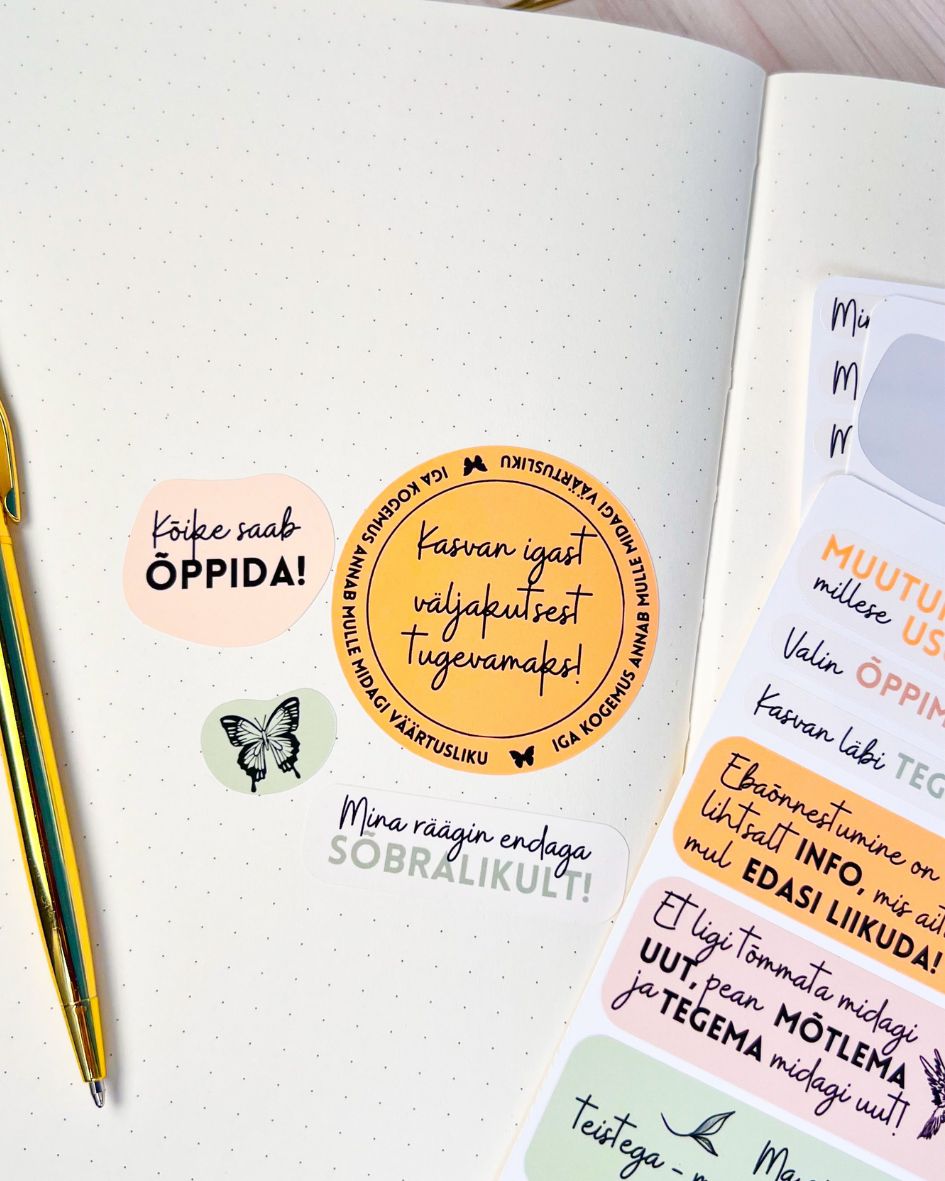 Kõike saab
ÕPPIDA!
IGA KOGEMUS ANNAB MULLE MIDAGI VÄÄRTUSLIKU
IGA KOGEMUS ANNAB MULLE MIDAGI VÄÄRTUSLIKU
Kasvan igast
väljakutsest
tugevamaks!
Mina räägin endaga
SÕBRALIKULT!
millese
Valin
Kasvan läbi
Ebaõnnestumine on
lihtsalt INFO, mis
mul EDASI LIIKUDA!
Et ligi tõmmata midagi
UUT, pean MÕTLEMA
ja TEGEMA midagi uut!
teistega -